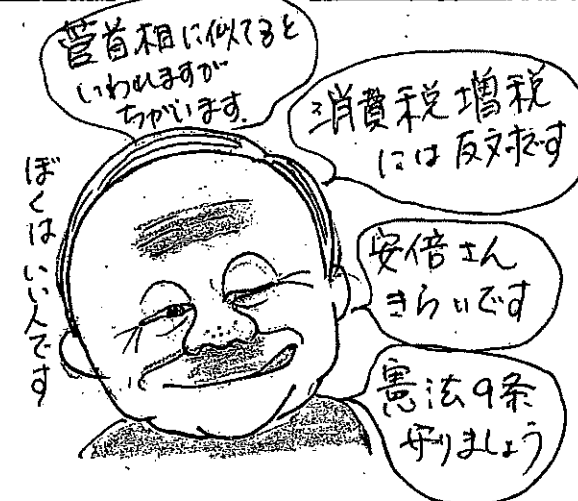 菅首相に似てると
いわれますが
ちがいます。
消費税増税
には反対です
安倍さん
きらいです
憲法9条
守りましょう
ぼくはいい人です